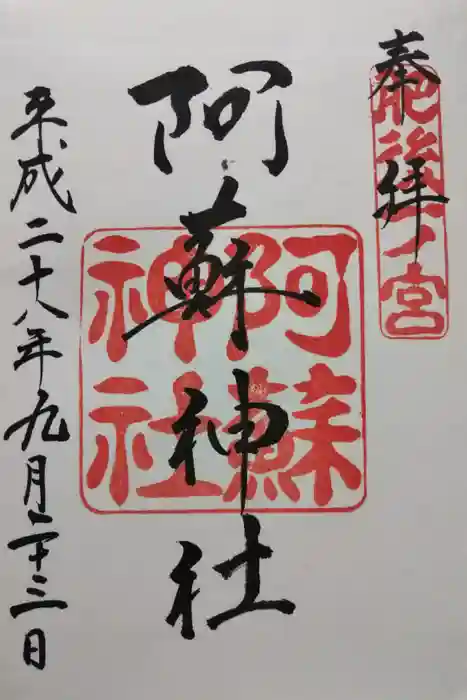 奉拝
肥後一ノ宮
阿蘇神社
阿蘇
神社
平成二十八年九月二十三日